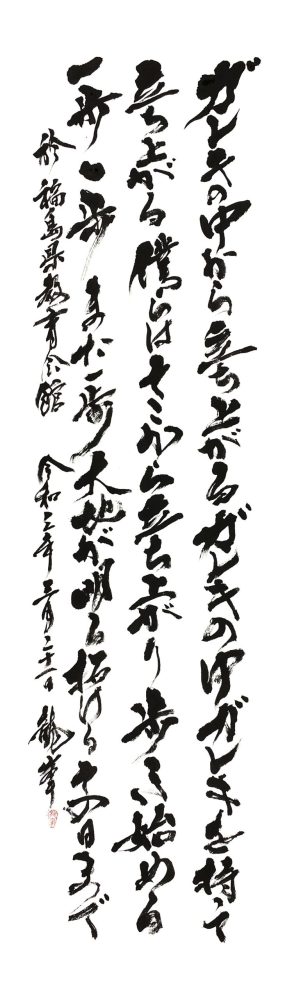 ガレキの中から立ち上がるガレキの中ガレキを持って
立ち上がる僕らはそこから立ち上がり歩き始める
一歩一歩また一歩大地が明る拓ける その日まで
於 福島県教育会館 令和三年三月二十一日 龍峯